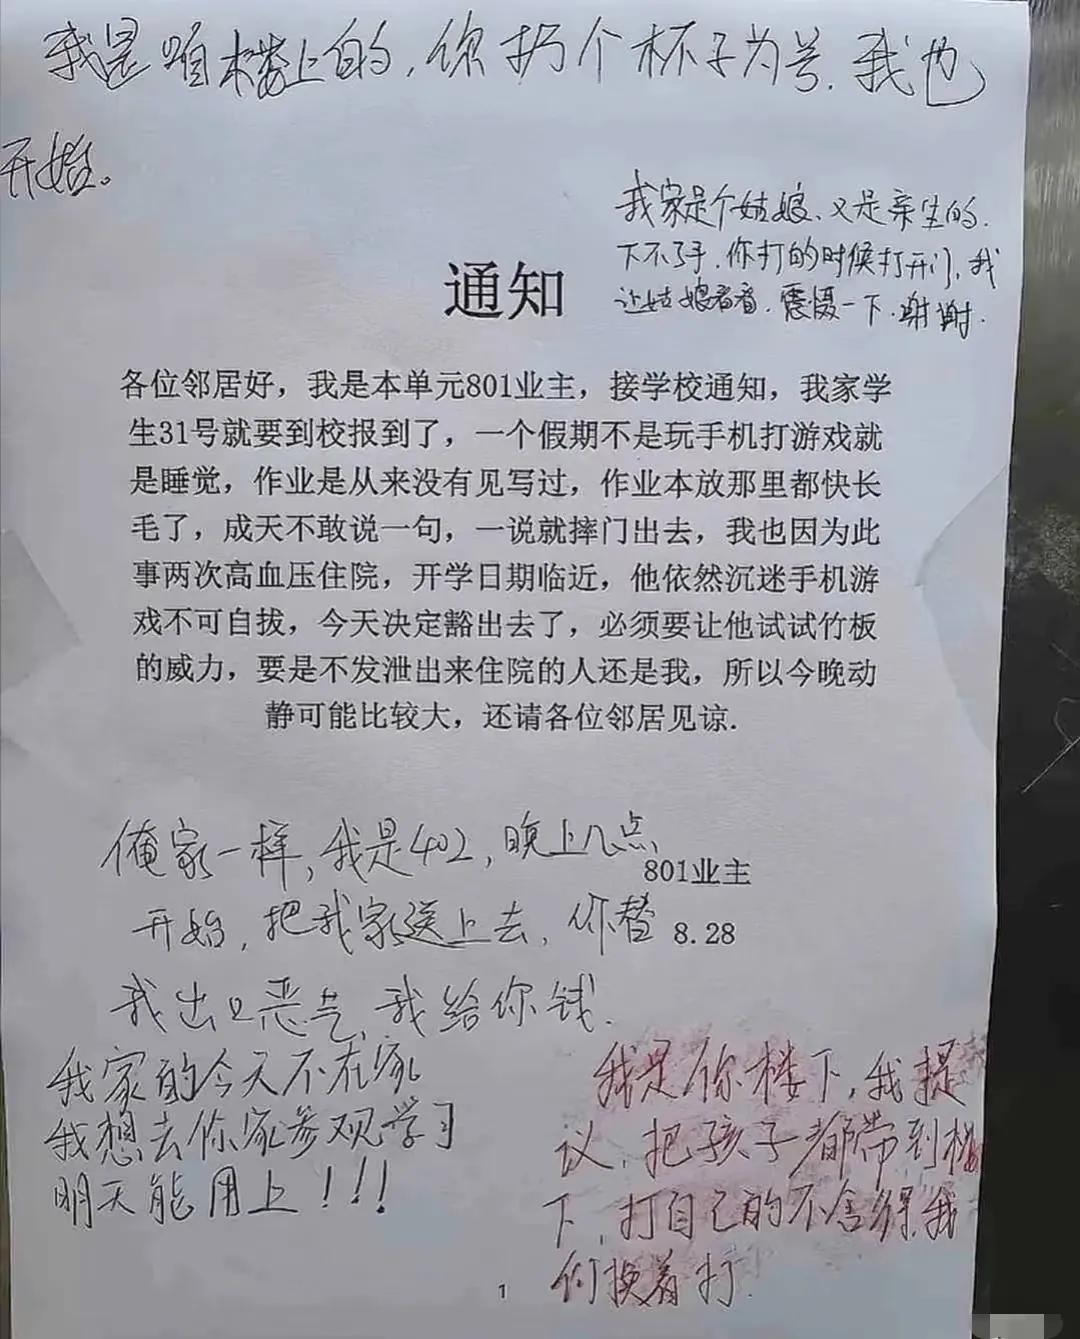 我是咱楼上的，你扔个杯子为号．我也
开始。
我家是个姑娘、又是亲生的．
下不了手．你打的时候打开门，我
让姑娘看看．震慑一下．谢谢．
通知
各位邻居好，我是本单元801业主，接学校通知，我家学
生31号就要到校报到了，一个假期不是玩手机打游戏就
是睡觉，作业是从来没有见写过，作业本放那里都快长
毛了，成天不敢说一句，一说就摔门出去，我也因为此
事两次高血压住院，开学日期临近，他依然沉迷手机游
戏不可自拔，今天决定豁出去了，必须要让他试试竹板
的威力，要是不发泄出来住院的人还是我，所以今晚动
静可能比较大，还请各位邻居见谅.
801业主
8.28
俺家一样，我是402，晚上几点
开始，把我家送上去，你替
我出口恶气，我给你钱．
我家的今天不在家
我想去你家参观学习
明天能用上！！！
我是你楼下，我提
议，把孩子都带到楼
下，打自己的不舍得，我
们换着打．
1